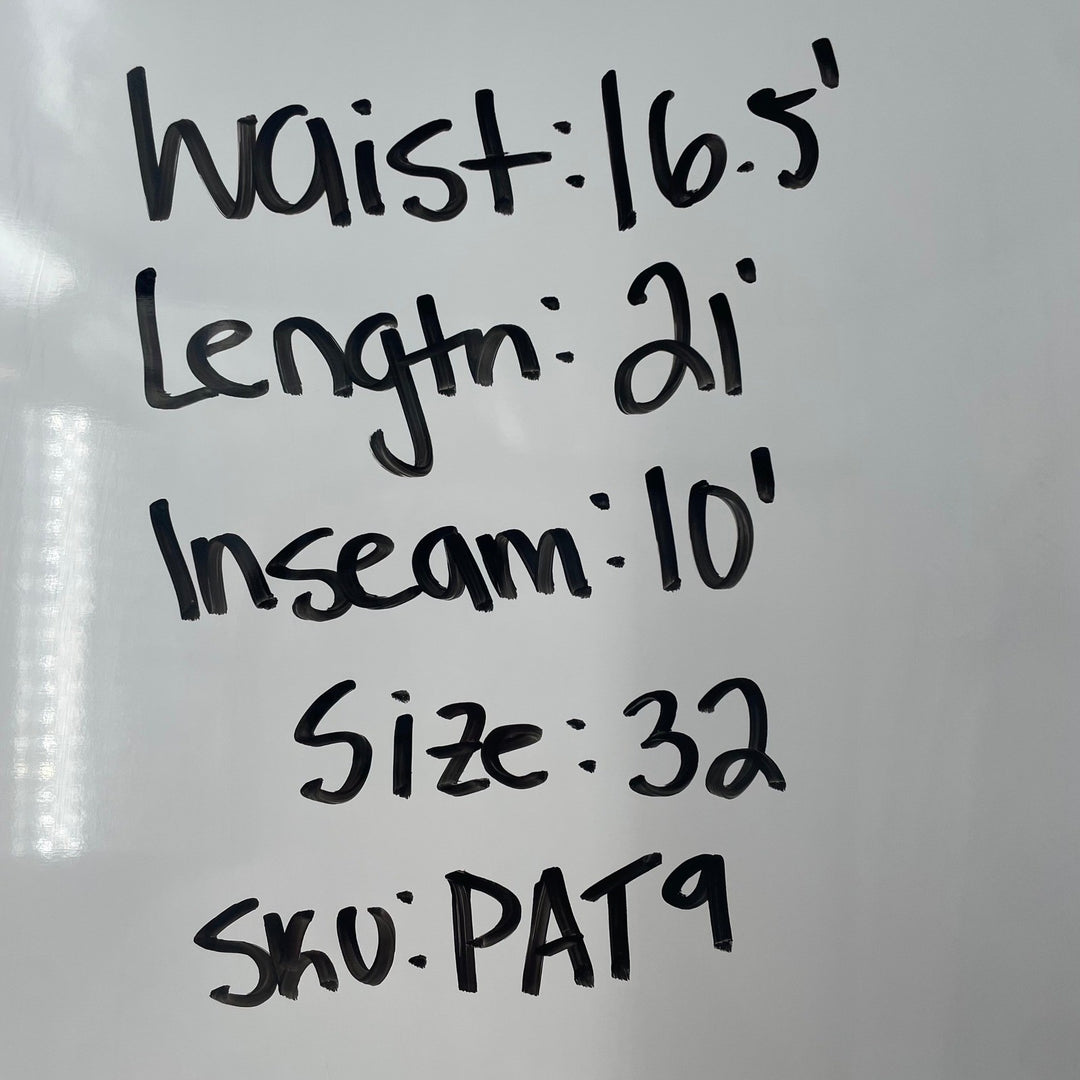 Waist: 16.5'
Length: 21'
Inseam: 10'
Size: 32
SKU: PAT9